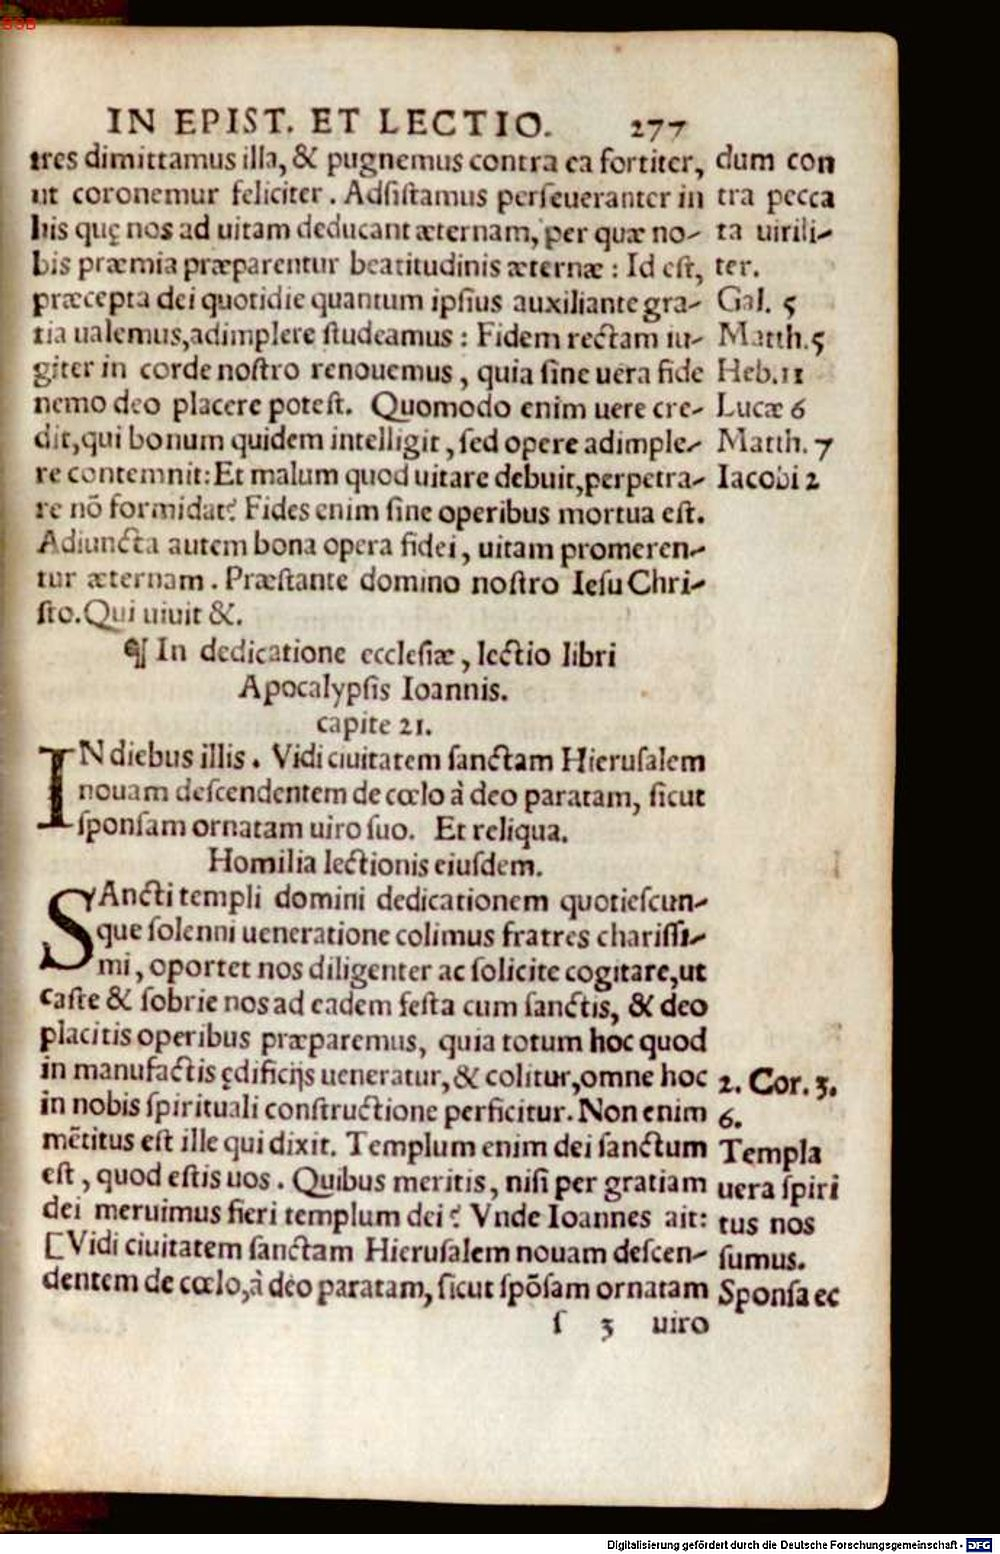 IN EPIST. ET LECTIO. 277
tres dimittamus illa, & pugnemus contra ea fortiter,
ut coronemur feliciter. Adsistamus perseueranter in
his quę nos ad uitam deducant æternam, per quæ no-
bis præmia præparentur beatitudinis æternæ: Id est,
præcepta dei quotidie quantum ipsius auxiliante gra-
tia ualemus, adimplere studeamus: Fidem rectam iu-
giter in corde nostro renouemus, quia sine uera fide
nemo deo placere potest. Quomodo enim uere cre-
dit, qui bonum quidem intelligit, sed opere adimple-
re contemnit: Et malum quod uitare debuit, perpetra-
re nō formidat? Fides enim sine operibus mortua est.
Adiuncta autem bona opera fidei, uitam promeren-
tur æternam. Præstante domino nostro Iesu Chri-
sto. Qui uiuit &.
dum con
tra pecca
ta uirili-
ter.
Gal. 5
Matth. 5
Heb. 11
Lucæ 6
Matth. 7
Iacobi 2
¶ In dedicatione ecclesiæ, lectio libri
Apocalypsis Ioannis.
capite 21.
IN diebus illis. Vidi ciuitatem sanctam Hierusalem
nouam descendentem de cœlo à deo paratam, sicut
sponsam ornatam uiro suo. Et reliqua.
Homilia lectionis eiusdem.
SAncti templi domini dedicationem quotiescun-
que solenni ueneratione colimus fratres charissi-
mi, oportet nos diligenter ac solicite cogitare, ut
caste & sobrie nos ad eadem festa cum sanctis, & deo
placitis operibus præparemus, quia totum hoc quod
in manufactis ędificijs ueneratur, & colitur, omne hoc
in nobis spirituali constructione perficitur. Non enim
mētitus est ille qui dixit. Templum enim dei sanctum
est, quod estis uos. Quibus meritis, nisi per gratiam
dei meruimus fieri templum dei? Vnde Ioannes ait:
[Vidi ciuitatem sanctam Hierusalem nouam descen-
dentem de cœlo, à deo paratam, sicut spōsam ornatam
2. Cor. 3.
6.
Templa
uera spiri
tus nos
sumus.
Sponsa ec
s 3 uiro
Digitalisierung gefördert durch die Deutsche Forschungsgemeinschaft - DFG